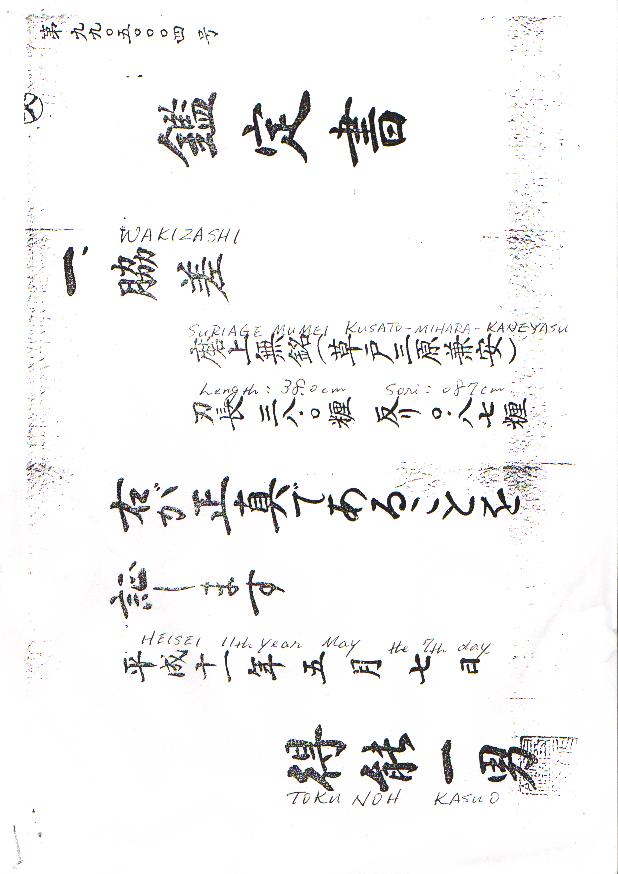 第九九〇五〇〇四号
鑑定書
WAKIZASHI
一、脇差
SURIAGE MUMEI KUSATO-MIHARA-KANEYASU
磨上無銘(草戸三原兼安)
Length: 38.0cm Sori: 087cm
刃長三八・〇糎 反り〇・八七糎
右が正真であることを
証します
HEISEI 11th year May the 7th day
平成十一年五月七日
得能一男
TOKU NOH KASUO